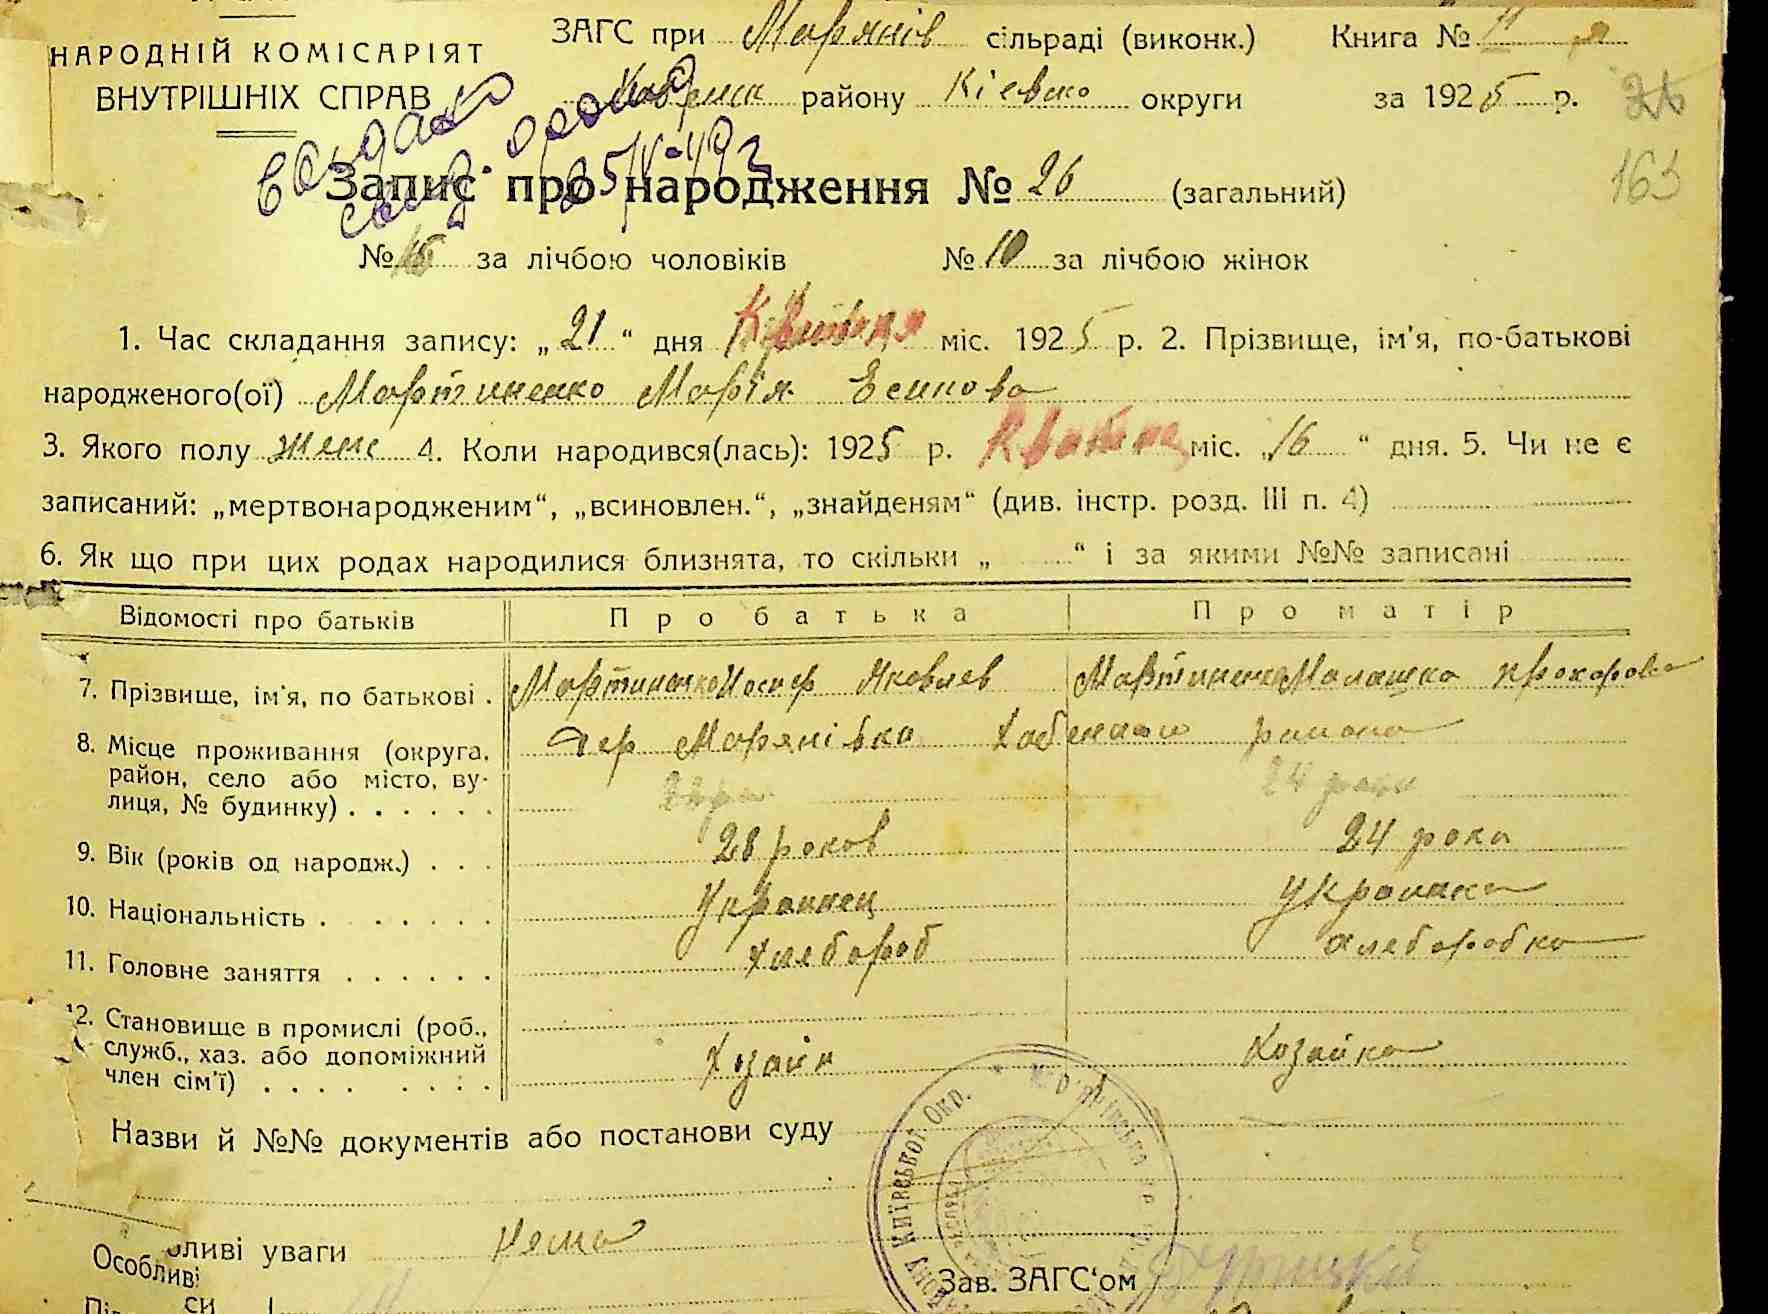 НАРОДНІЙ КОМІСАРІЯТ
ВНУТРІШНІХ СПРАВ
ЗАГС при Марянів сільраді (виконк.) Книга № II
району Кіевско округи за 1925 р. 26
163
Запис про народження № 26 (загальний)
№ 16 за лічбою чоловіків № 10 за лічбою жінок
1. Час складання запису: „21“ дня Квитня міс. 1925 р. 2. Прізвище, ім'я, по-батькові
народженого(ої) Мартиненко Марія Есипова
3. Якого полу женс 4. Коли народився(лась): 1925 р. міс. „16“ дня. 5. Чи не є
записаний: „мертвонародженим“, „всиновлен.“, „знайденям“ (див. інстр. розд. III п. 4)
6. Як що при цих родах народилися близнята, то скільки „ “ і за якими №№ записані
Відомості про батьків Про батька Про матір
7. Прізвище, ім'я, по батькові . Мартиненко Иосиф Яковлев Мартиненко Малашка Прохорова
8. Місце проживання (округа, дер Марянівка Хабенского района
район, село або місто, ву-
лиця, № будинку) . . . . . . 24 роки
9. Вік (років од народж.) . . . 28 роков 24 рока
10. Національність . . . . . . . Украинец Украинка
11. Головне заняття . . . . . . Хлебороб Хлеборобка
12. Становище в промислі (роб.,
служб., хаз. або допоміжний Хозаин Хозайка
член сім'ї) . . . . . . . .
Назви й №№ документів або постанови суду
Київської Окр.
Особливі уваги нема
Зав. ЗАГС'ом